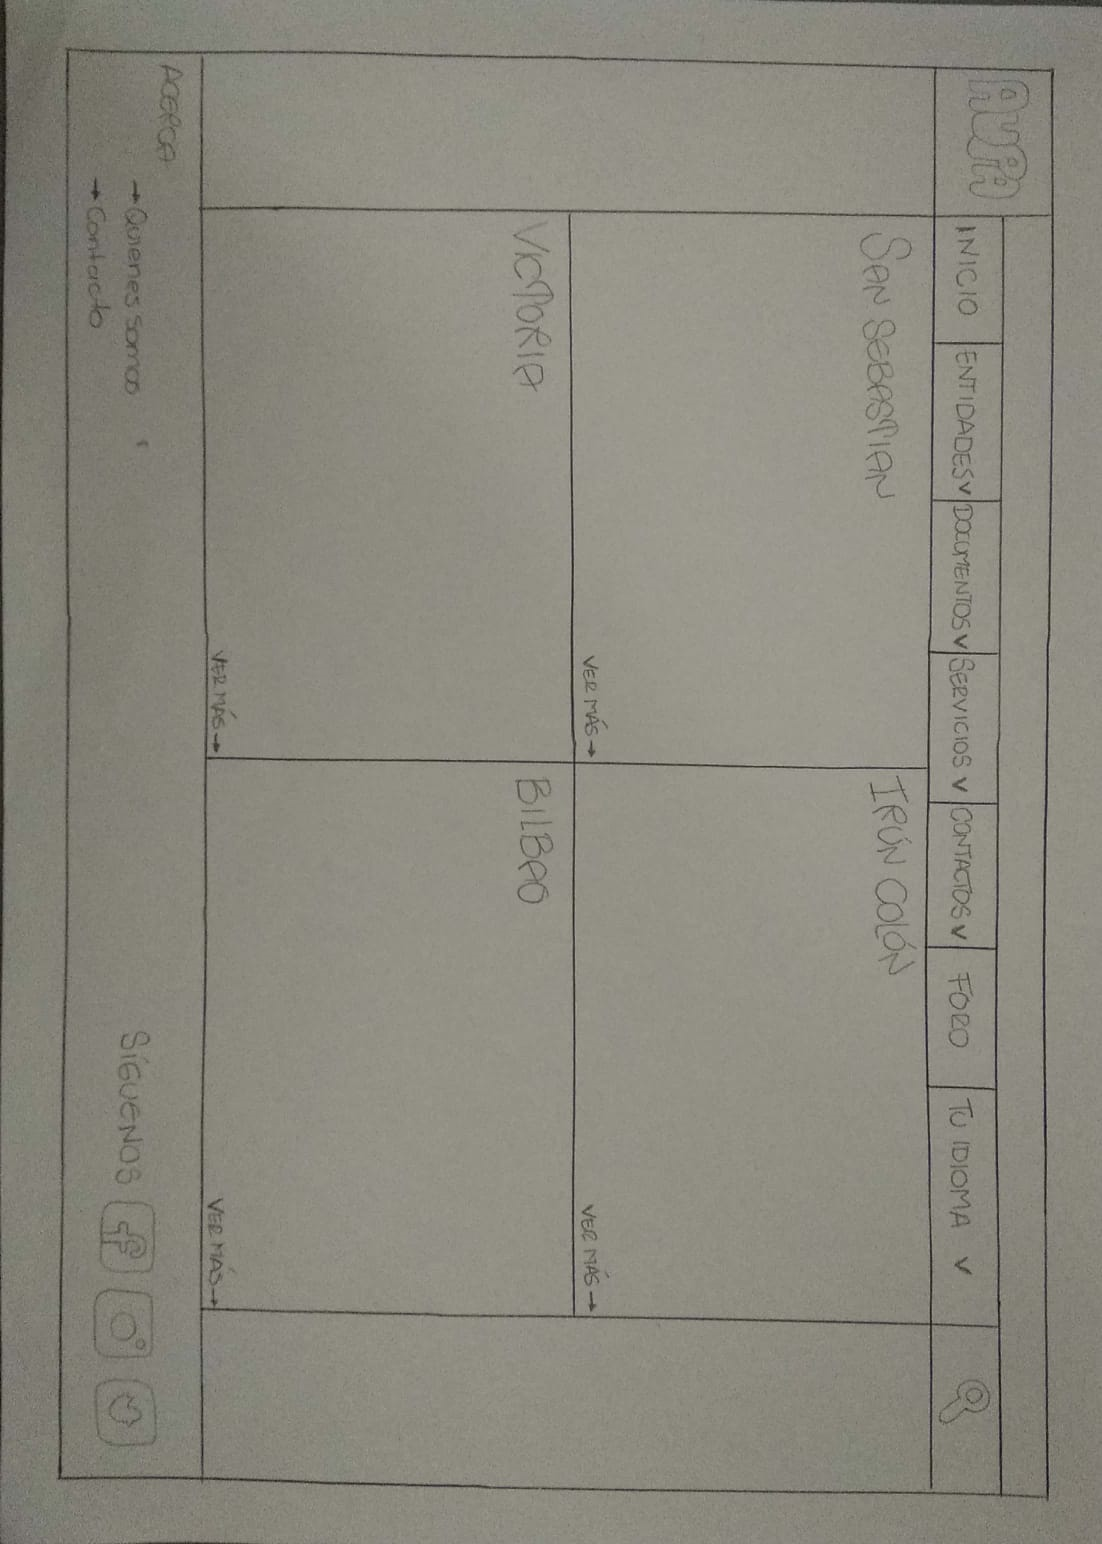 INICIO
ENTIDADES
DOCUMENTOS
SERVICIOS
CONTACTOS
FORO
TU IDIOMA
SAN SEBASTIAN
VER MÁS →
IRÚN COLÓN
VER MÁS →
VICTORIA
VER MÁS →
BILBAO
VER MÁS →
ACERCA
→ Quienes somos
→ Contacto
SÍGUENOS